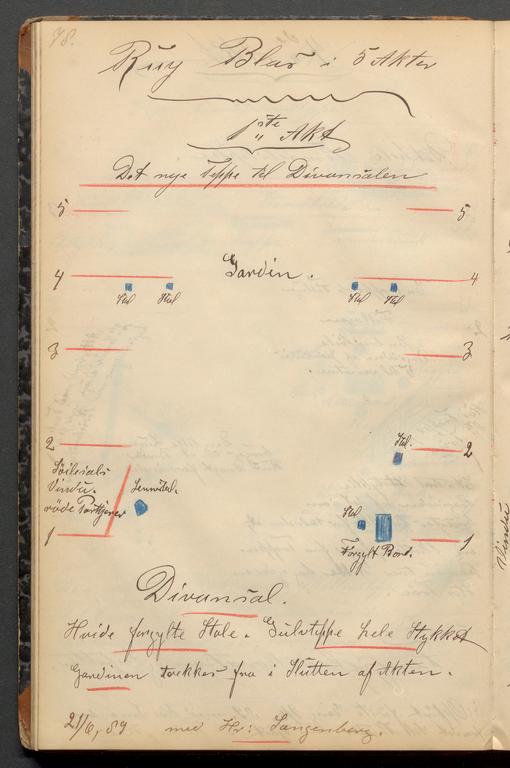 78.
Ruy Blas i 5 Akter
1ste Akt
Det nye Teppe til Divansalen
5 5
4 Gardin. 4
Stol Stol Stol Stol
3 3
2 Stol. 2
Söilesals
Vindu. Lennestol.
röde Portierer Stol
1 1
Forgylt Bord.
Divansal.
Hvide forgylte Stole. Gulvteppe hele Stykket
Gardinen trekkes fra i Slutten af Akten.
21/6, 89 med Hr: Langenberg.
Vindu